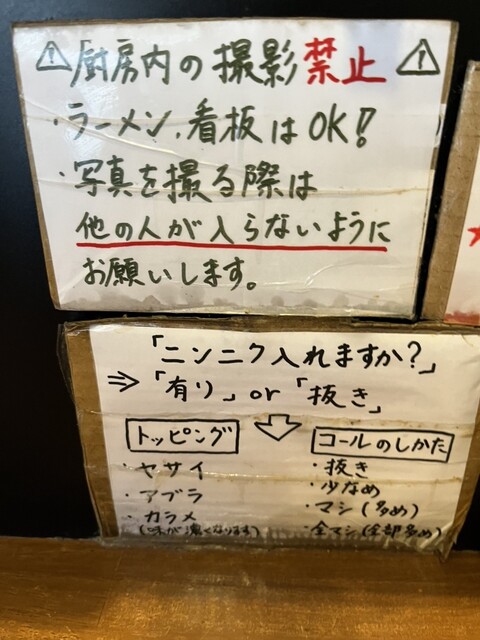 ⚠「厨房内の撮影禁止⚠
・ラーメン、看板はOK!!
・写真を撮る際は
他の人が入らないように
お願いします。
「ニンニク入れますか?」
⇒「有り」or「抜き」
トッピング
・ヤサイ
・アブラ
・カラメ
(味が濃くなります)
コールのしかた
・抜き
・少なめ
・マシ(多め)
・全マシ(全部多め)